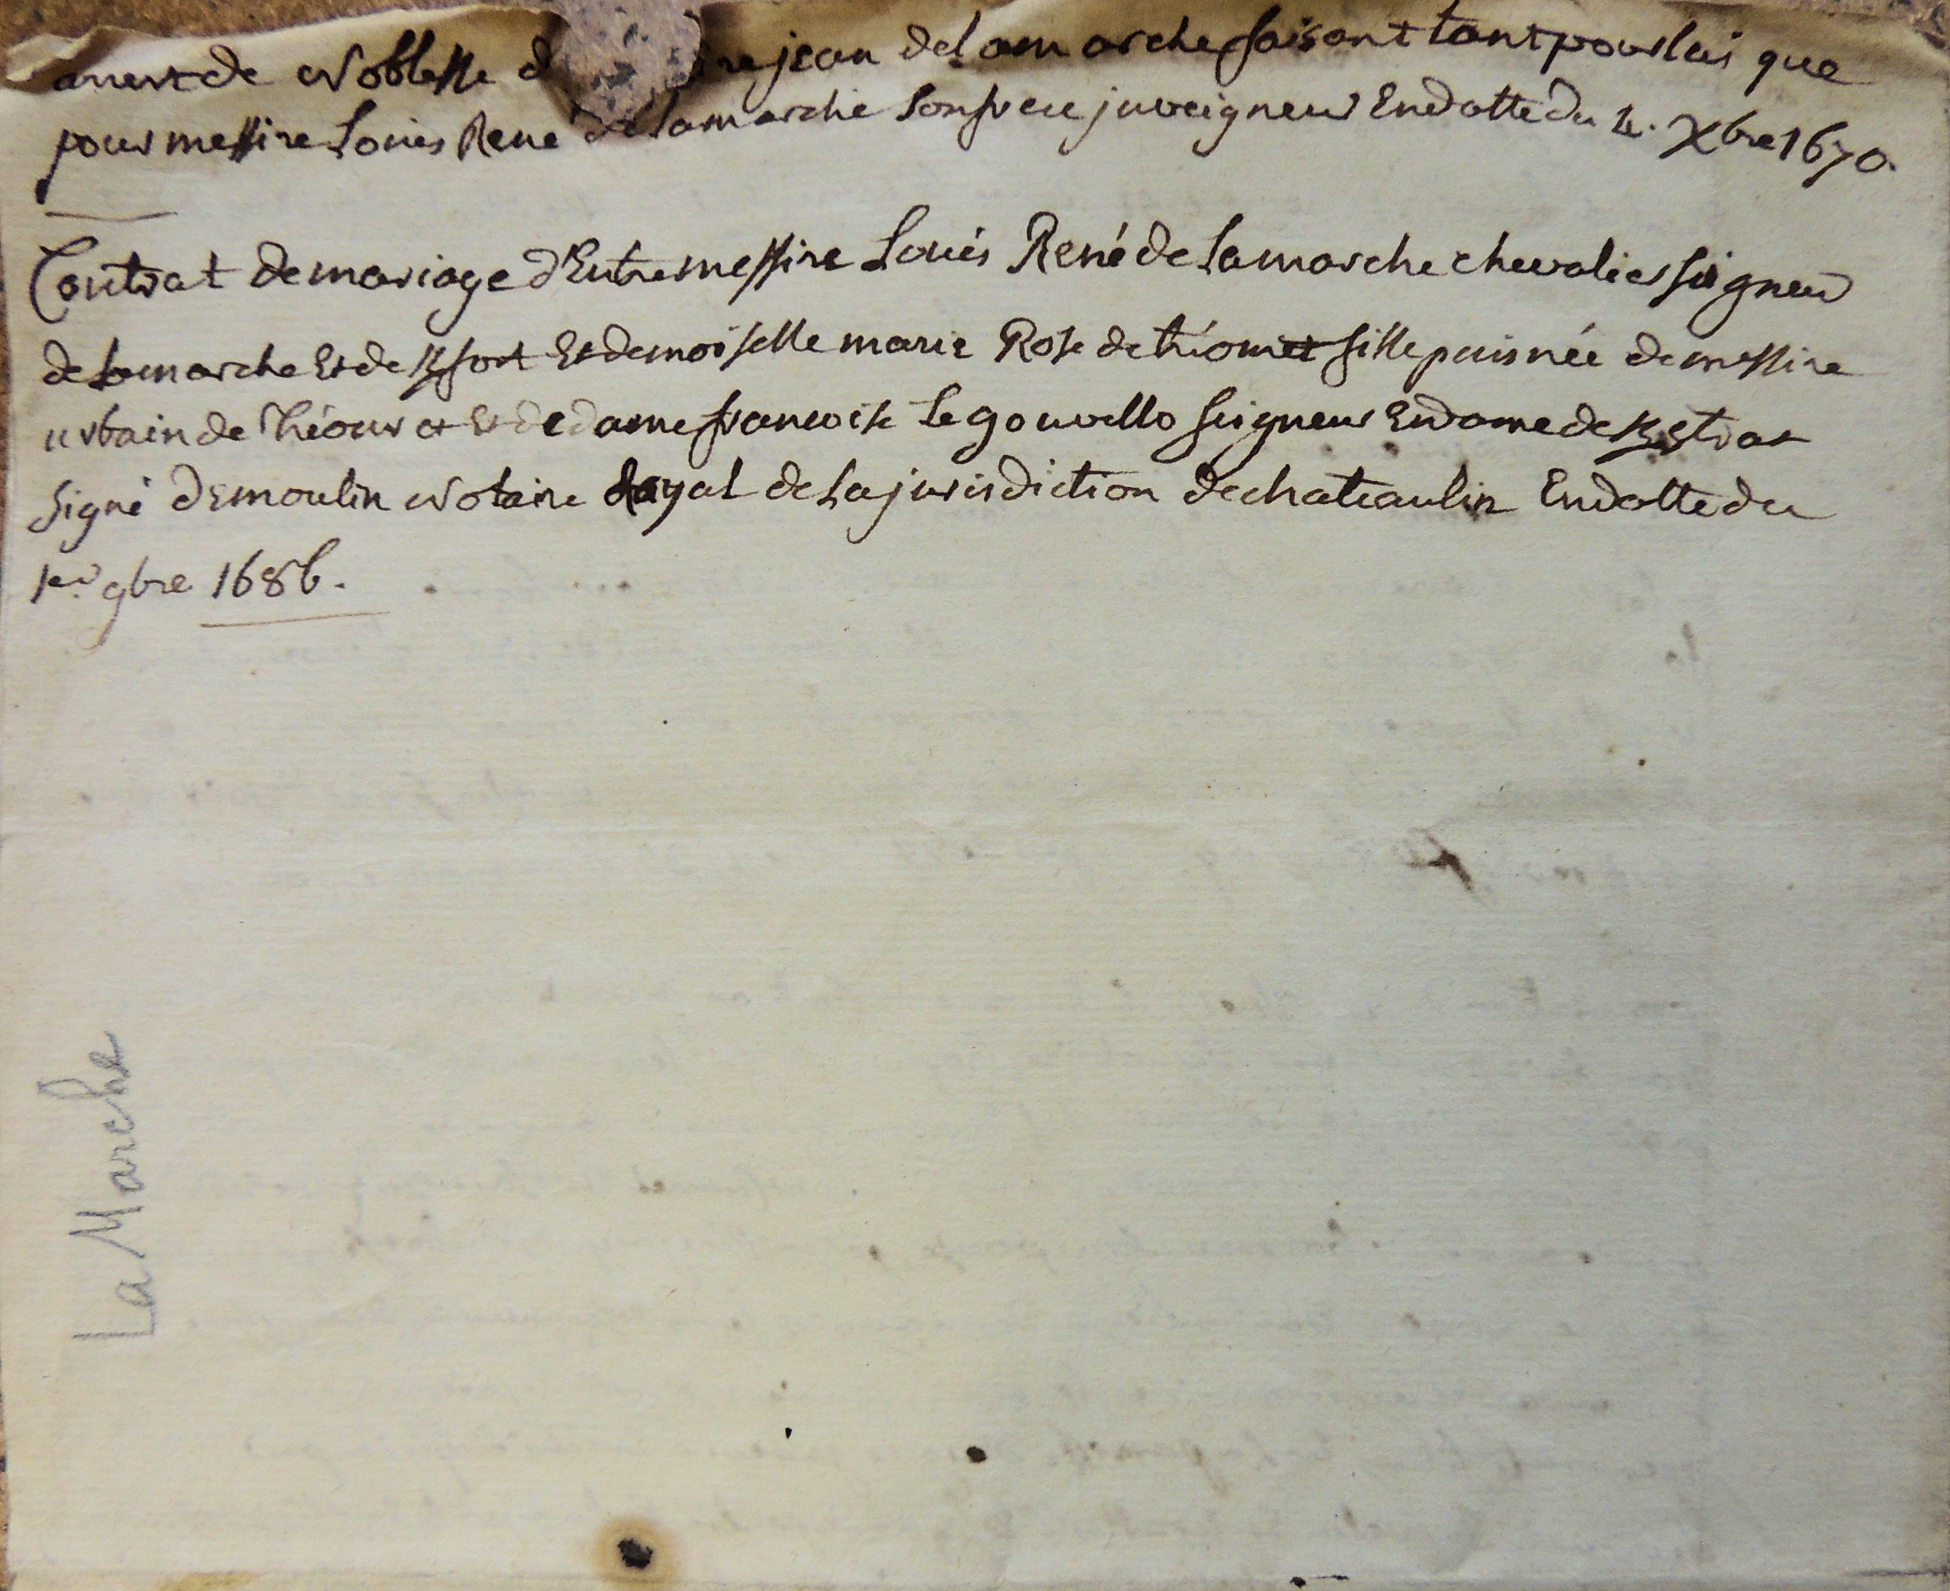 arrest de Noblesse d jean de Lamarche faisant tant pour lui que
pour messire Louis René de Lamarche son frere juveigneur En datte du 4. Xbre 1670.
Contrat de mariage d'Entre messire Louis René de Lamarche chevalier seigneur
de Lamarche Et de Kfort Et demoiselle marie Rose de tréouret fille puisnée de messire
urbain de Théouret Et de dame francoise Le gouvello seigneur En dame de
signé Demoulin Notaire Royal de La jurisdiction de chateaulin En datte du
1er gbre 1686.
La Marche